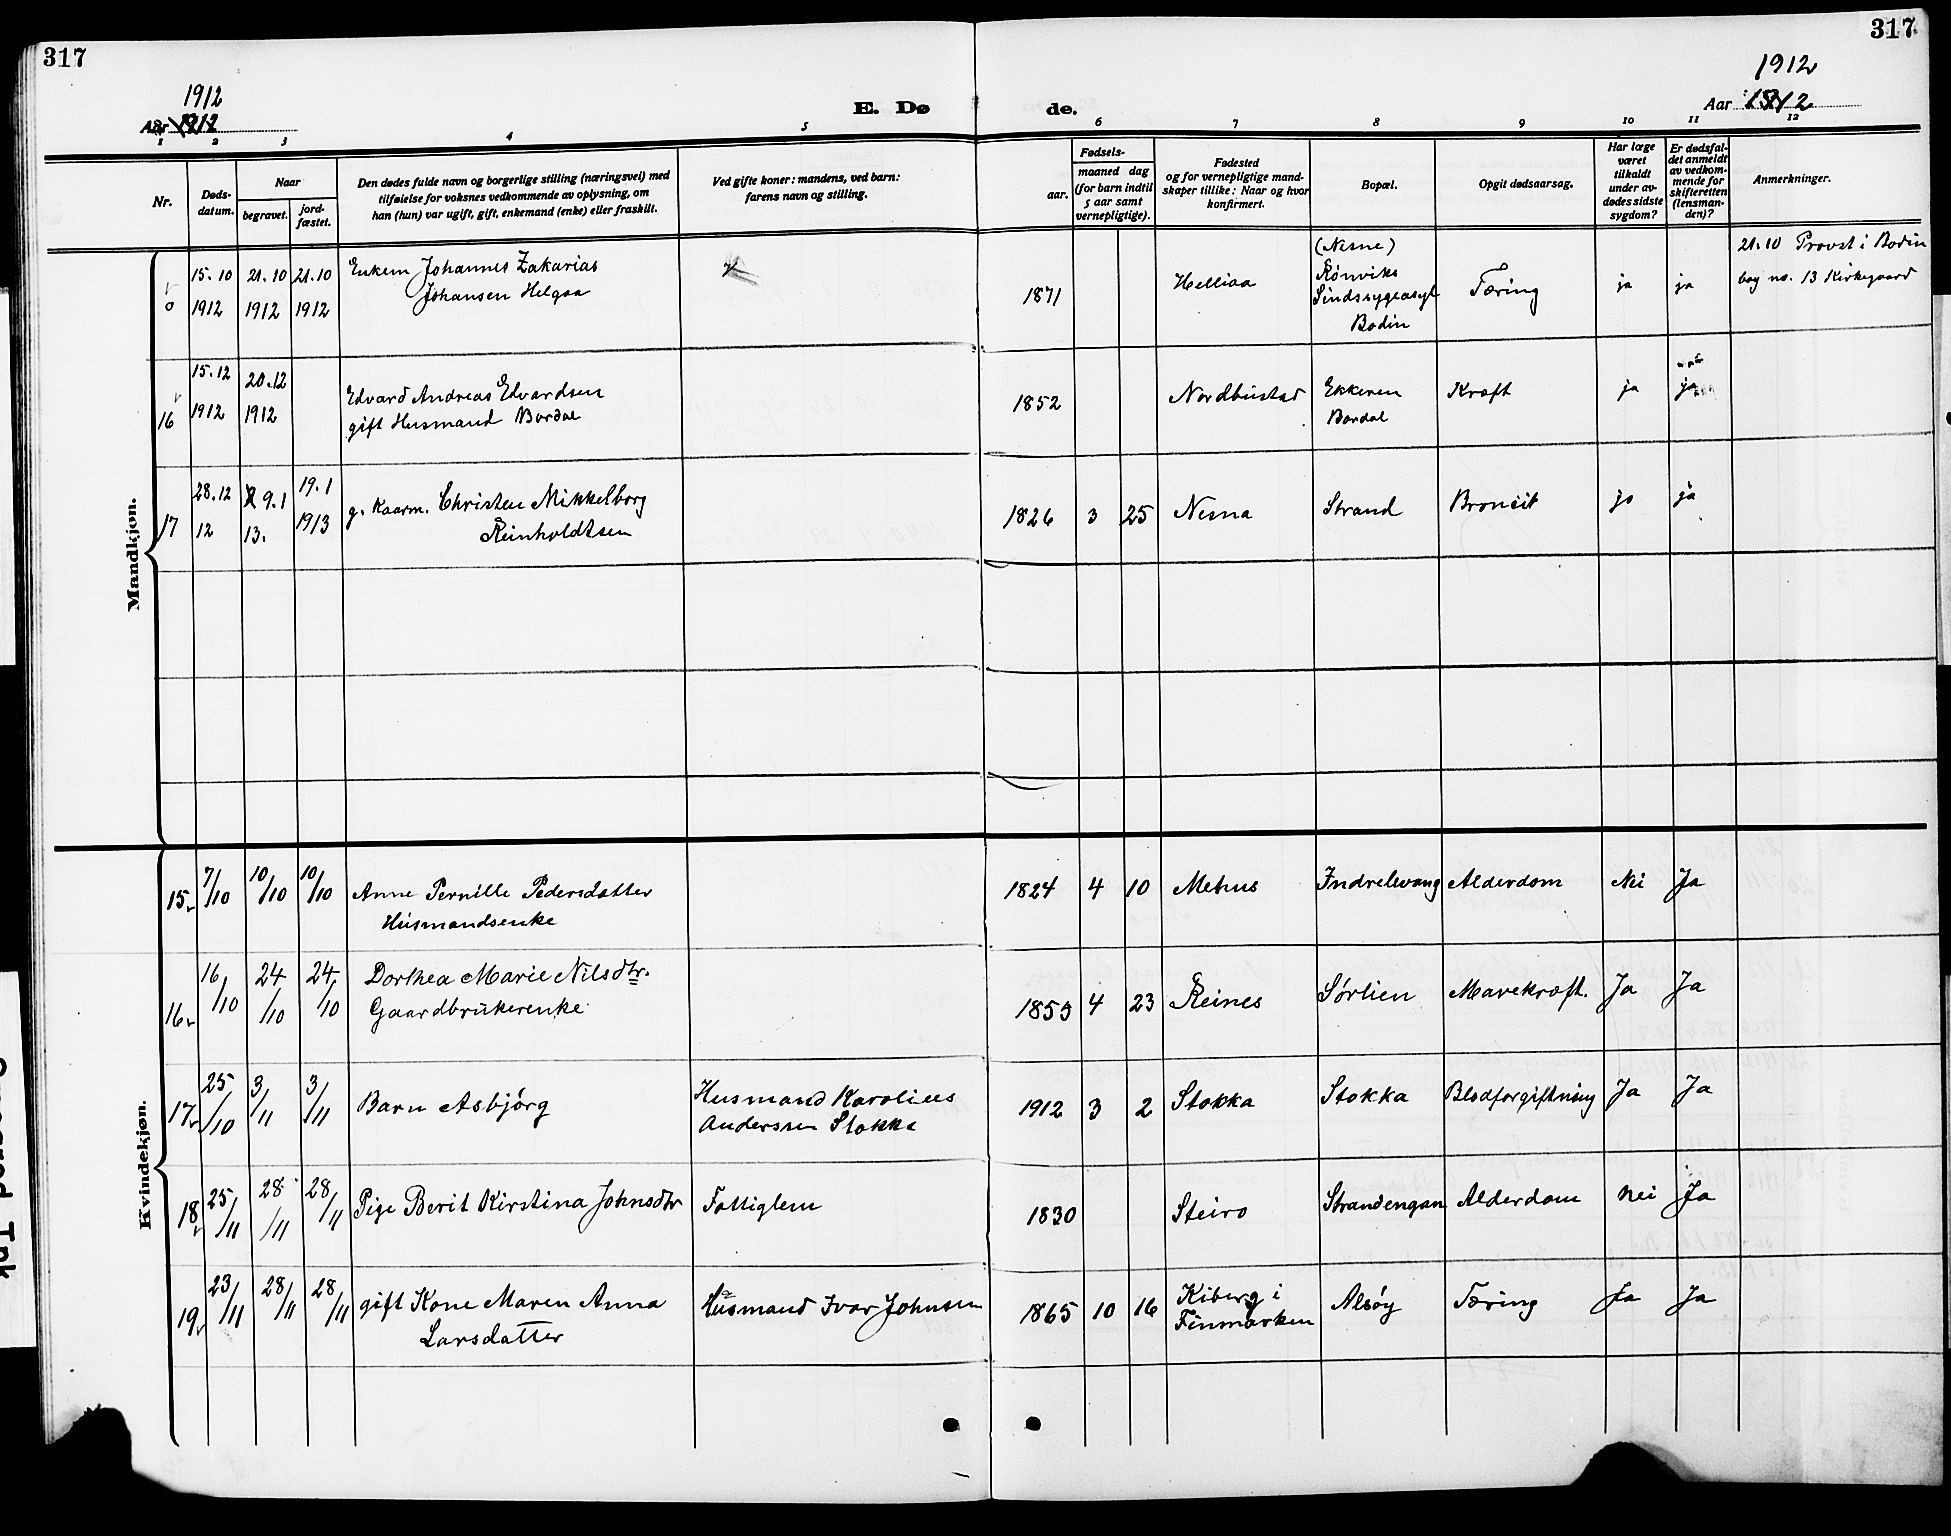 317
317
1912
1912
Aar 1912
E. Dø
de.
Aar 1912
1
2
3
4
5
6
7
8
9
10
11
12
Nr.
Døds-
datum.
Naar
begravet.
jord-
fæstet.
Den dødes fulde navn og borgerlige stilling (næringsvei) med
tilføielse for voksnes vedkommende av oplysning, om
han (hun) var ugift, gift, enkemand (enke) eller fraskilt.
Ved gifte koner: mandens, ved barn:
farens navn og stilling.
Fødsels-
aar.
maaned dag
(for barn indtil
5 aar samt
vernepligtige).
Fødested
og for vernepligtige mand-
skaper tillike: Naar og hvor
konfirmert.
Bopæl.
Opgit dødsaarsag.
Har læge
været
tilkaldt
under av-
dødes sidste
sygdom?
Er dødsfal-
det anmeldt
av vedkom-
mende for
skifteretten
(lensman-
den)?
Anmerkninger.
Mandkjøn.
o
15.10
1912
21.10
1912
21.10
1912
Enkem Johannes Zakarias
Johansen Helgaa
1871
Helliaa
(Nesne)
Rönviks
Sindssygeasyl
Bodin
Tæring
ja
ja
21.10 Provst i Bodin
beg no. 13 Kirkegaard
16
15.12
1912
20.12
1912
Edvard Andreas Edvardsen
gift Husmand Bardal
1852
Nordbustad
Ekkeren
Bardal
Kræft
ja
ja
17
28.12
12
9.1
13.
19.1
1913
g. Kaarm. Christen Mikkelborg
Reinholdtsen
1826 3 25
Nesna
Strand
Broncit
ja
ja
Kvindekjøn.
15
7/10
10/10
10/10
Anne Pernille Pedersdatter
Husmandsenke
1824 4 10
Mehus
Indrelevang
Alderdom
Nei
Ja
16
16/10
24/10
24/10
Dorthea Marie Nilsdtr.
Gaardbrukerenke
1853 4 23
Reines
Sørlien
Mavekræft.
Ja
Ja
17
25/10
3/11
3/11
Barn Asbjörg
Husmand Karolius
Anderssen Stokka
1912 3 2
Stokka
Stokka
Blodforgiftning
Ja
Ja
18
25/11
28/11
28/11
Pige Berit Kirstina Johnsdtr
Fattiglem
1830
Steiro
Strandengan
Alderdom
Nei
Ja
19
23/11
28/11
28/11
gift Kone Maren Anna
Larsdatter
Husmand Ivar Johnsen
1865 10 16
Kiberg i
Finmarken
Alsöy
Tæring
Ja
Ja